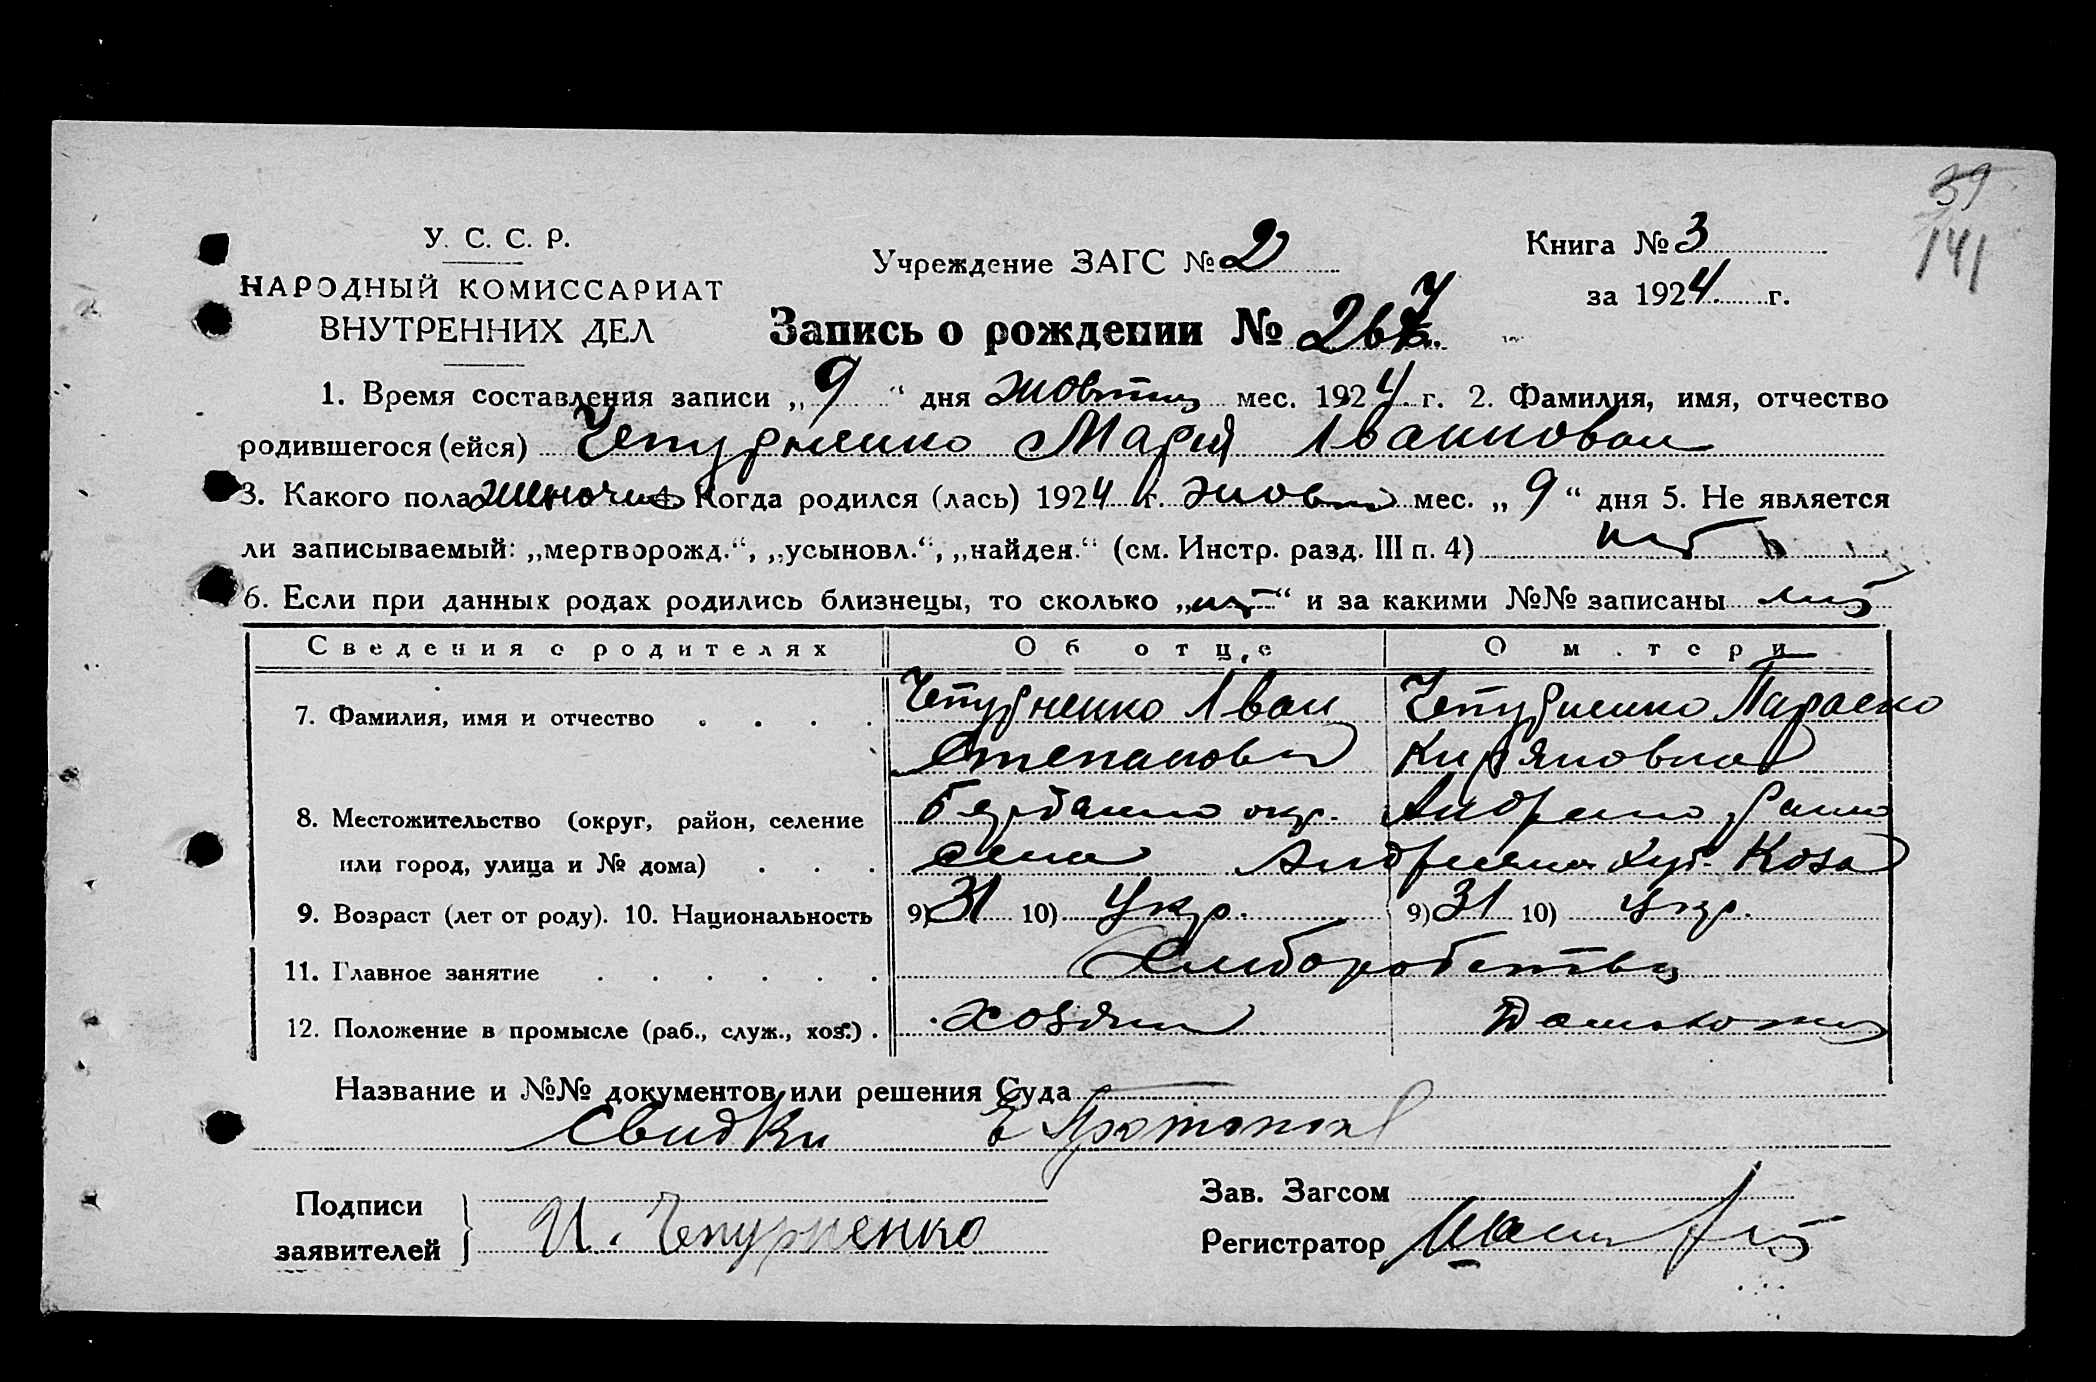 39
141
У. С. С. Р.
НАРОДНЫЙ КОМИССАРИАТ
ВНУТРЕННИХ ДЕЛ
Учреждение ЗАГС № 2
Книга № 3
за 1924 г.
Запись о рождении № 267
1. Время составления записи „9“ дня жовтня мес. 1924 г. 2. Фамилия, имя, отчество
родившегося (ейся) Чепурненко Мария Ивановна
3. Какого пола 4. Когда родился (лась) 1924 г. мес. „9“ дня 5. Не является
ли записываемый: „мертворожд.“, „усыновл.“, „найден.“ (см. Инстр. разд. III п. 4) нет
6. Если при данных родах родились близнецы, то сколько „нет“ и за какими №№ записаны нет
Сведения о родителях Об отце О матери
7. Фамилия, имя и отчество Чепурненко Иван Чепурненко Параска
Степанович Киряновна
8. Местожительство (округ, район, селение Бердянско окр.
или город, улица и № дома) села Коза
9. Возраст (лет от роду). 10. Национальность 9) 31 10) Укр. 9) 31 10) Укр.
11. Главное занятие Хлиборобство
12. Положение в промысле (раб., служ., хоз.) хозяин
Название и №№ документов или решения Суда
Свидки
Подписи
заявителей И. Чепурненко
Зав. Загсом
Регистратор